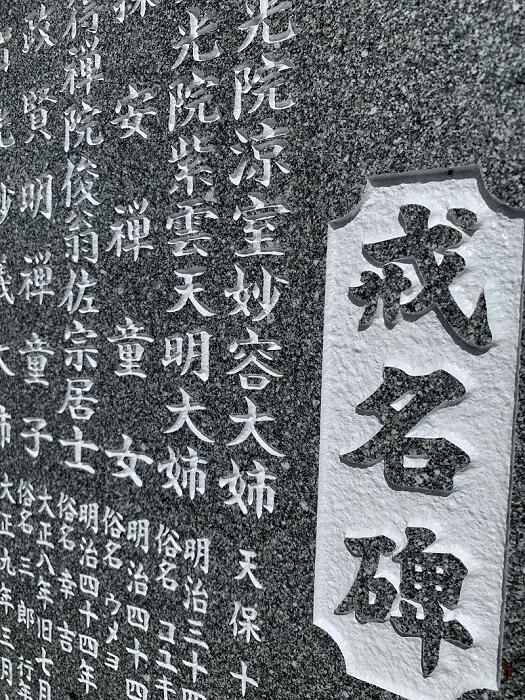 戒名碑
光院涼室妙容大姉
天保十
光院紫雲天明大姉
明治三十四
俗名 コユキ
安禅童女
明治四十四
俗名 ウメヨ
禅院俊翁佐宗居士
明治四十四年
俗名 幸吉
政賢明禅童子
大正八年旧七月
俗名 三郎 行年
大姉
大正九年三月